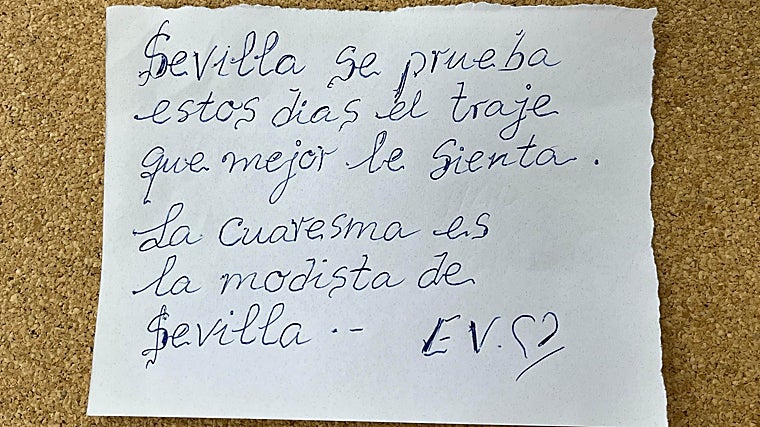 Sevilla se prueba
estos dias el traje
que mejor le sienta.
La cuaresma es
la modista de
Sevilla .-
E V. ♡